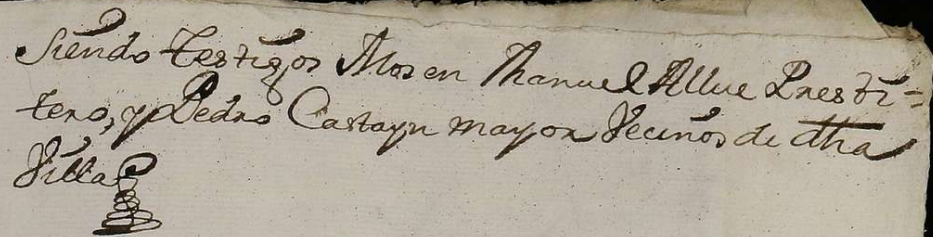 Siendo testigos Mosen Manuel Allue Presbi=
tero, y Pedro Castayn mayor Vecinos de dha
Villa